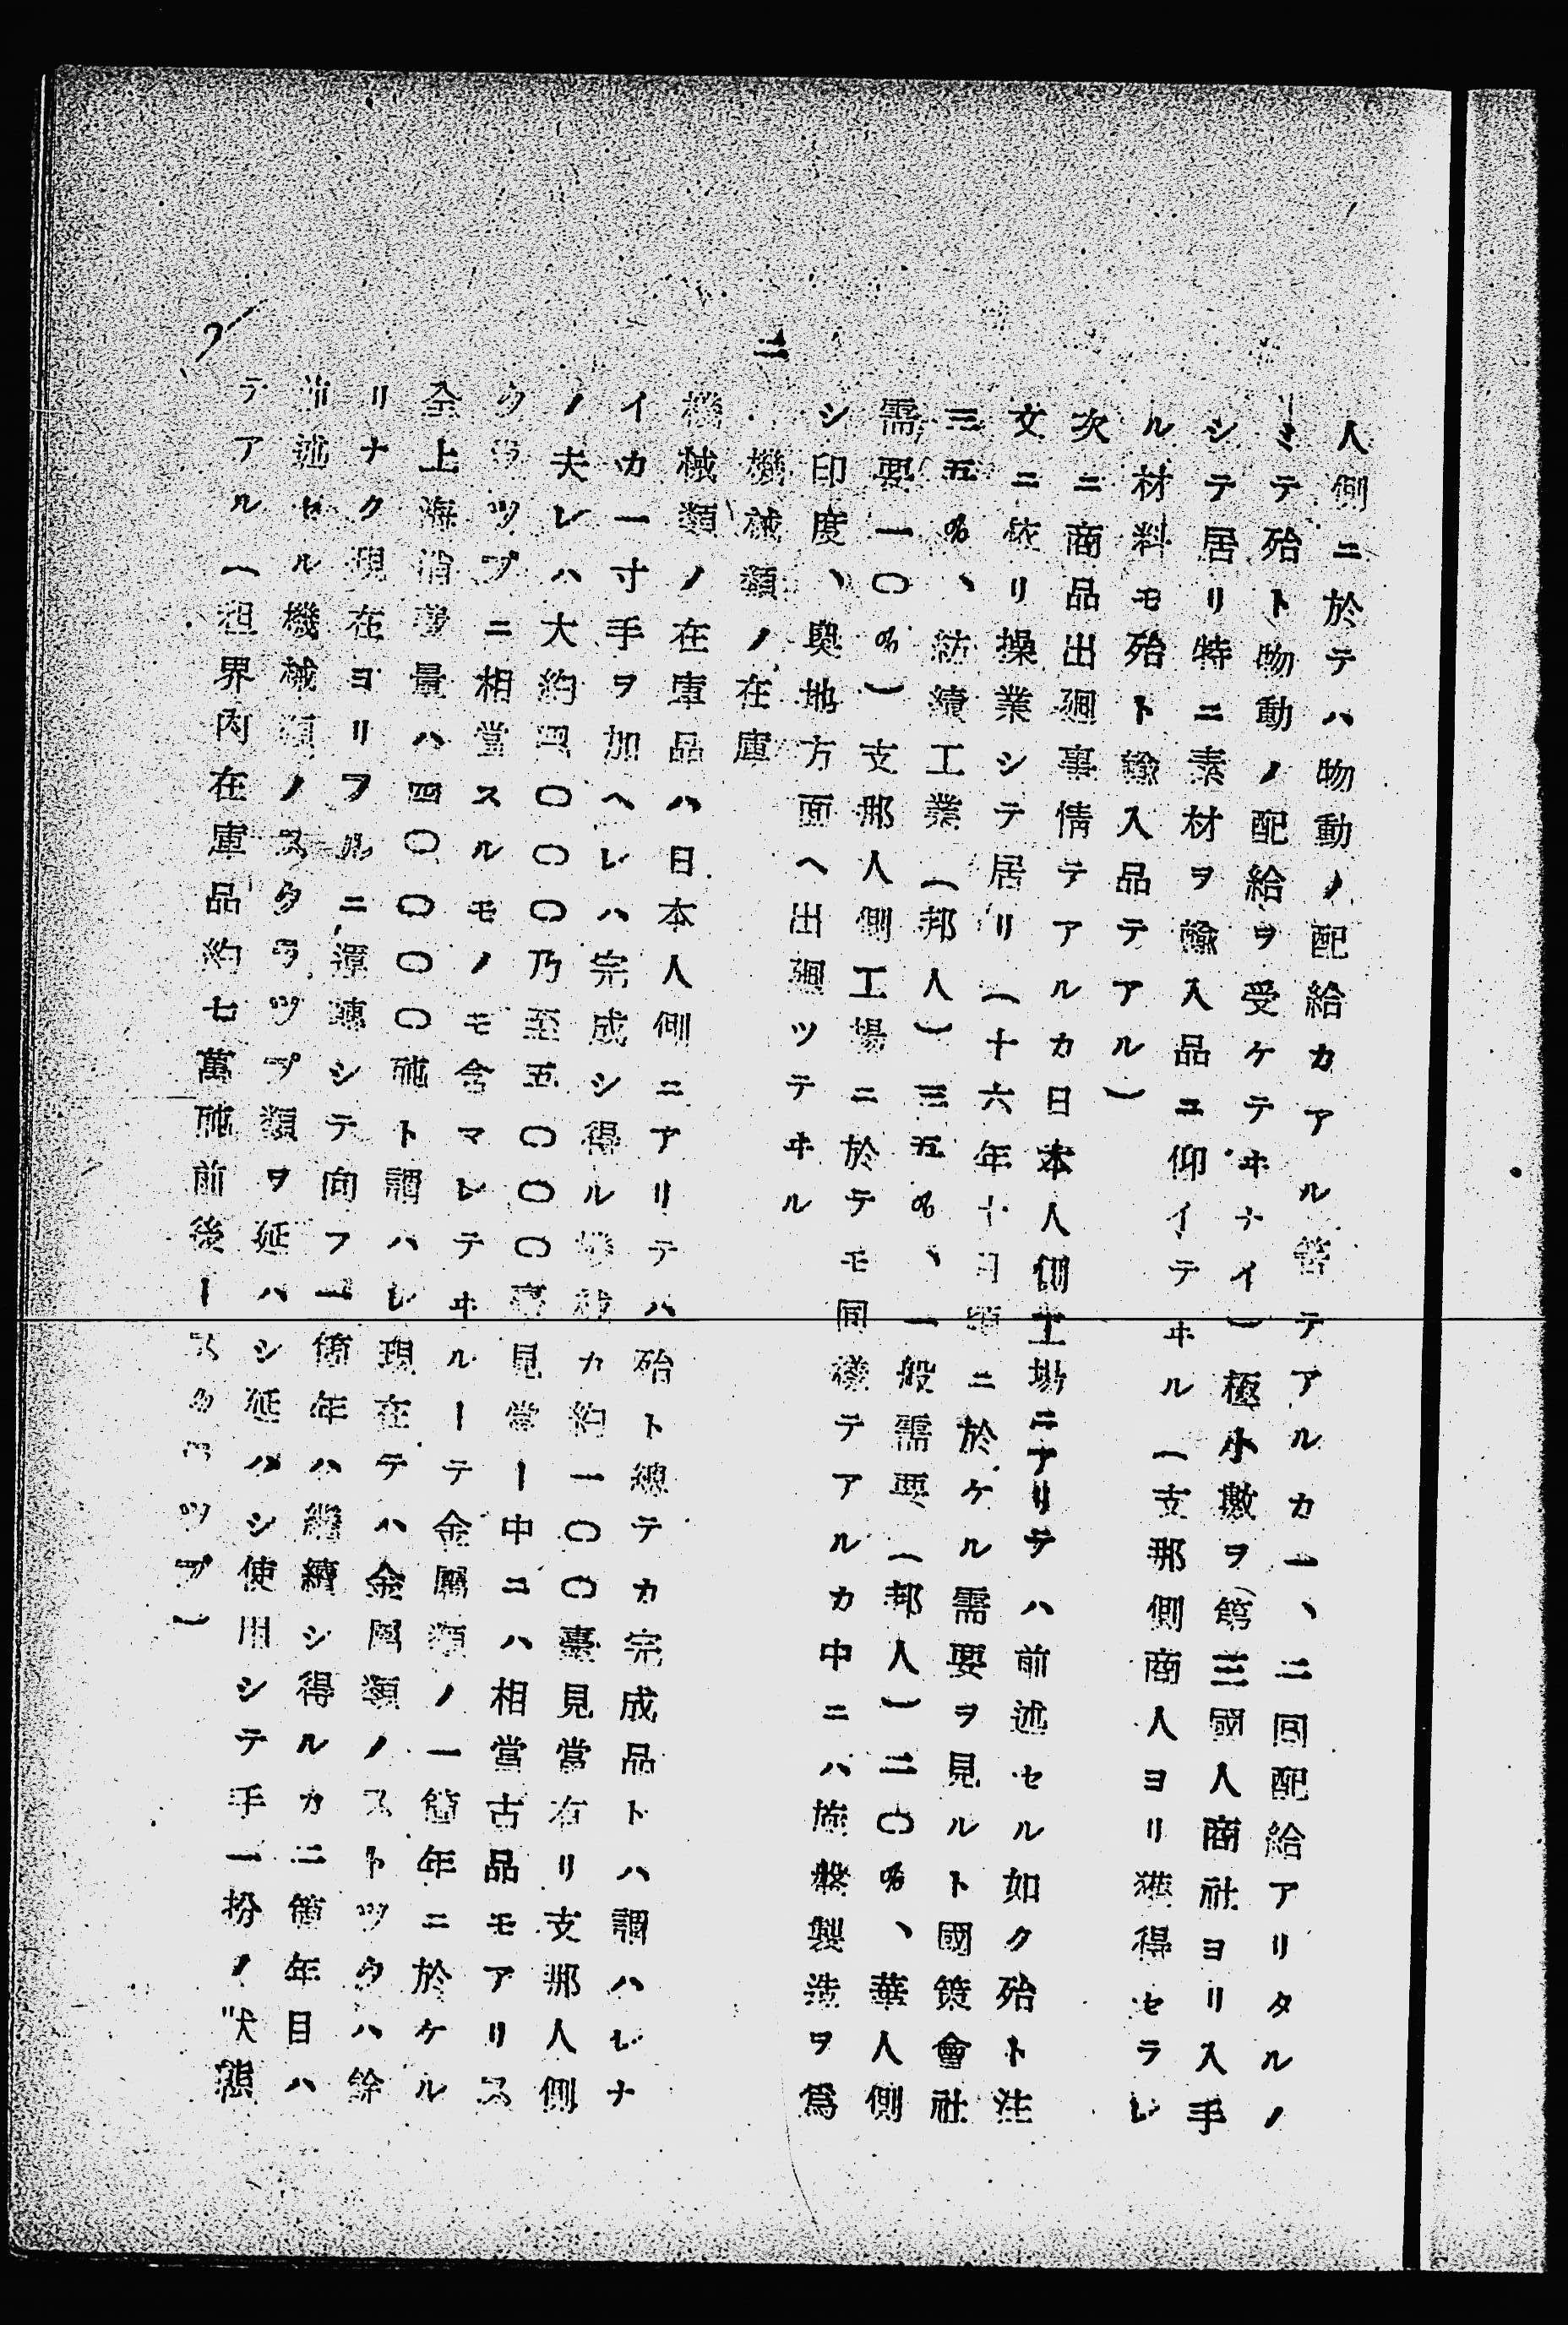 人側ニ於テハ物動ノ配給カアル筈テアルカ一、二回配給アリタルノ
ミテ殆ト物動ノ配給ヲ受ケテヰナイ)極小數ヲ第三國人商社ヨリ入手
シテ居リ特ニ素材ヲ輸入品ニ仰イテヰル(支那側商人ヨリ獲得セラレ
ル材料モ殆ト輸入品テアル)
次ニ商品出廻事情テアルカ日本人側工場ニアリテハ前述セル如ク殆ト注
文ニ依リ操業シテ居リ(十六年十月頃ニ於ケル需要ヲ見ルト國策會社
三五%、紡績工業(邦人)三五%、一般需要(邦人)二〇%、華人側
需要一〇%)支那人側工場ニ於テモ同樣テアルカ中ニハ旋盤製造ヲ爲
シ印度、奧地方面ヘ出廻ツテヰル
二、機械類ノ在庫
機械類ノ在庫品ハ日本人側ニアリテハ殆ト總テカ完成品トハ謂ハレナ
イカ一寸手ヲ加ヘレハ完成シ得ル機械カ約一〇〇臺見當有リ支那人側
ノ夫レハ大約四〇〇〇乃至五〇〇〇臺見當ー中ニハ相當古品モアリス
クラツプニ相當スルモノモ含マレテヰルーテ金屬類ノ一箇年ニ於ケル
全上海消費量ハ四〇〇〇〇砘ト謂ハレ現在テハ金屬類ノストツクハ餘
リナク現在ヨリフルニ運轉シテ向フ一箇年ハ繼續シ得ルカ二箇年目ハ
前述セル機械類ノスクラツプ類ヲ延ハシ延ハシ使用シテ手一扮ノ狀態
テアル(租界内在庫品約七萬砘前後ースクラツプ)